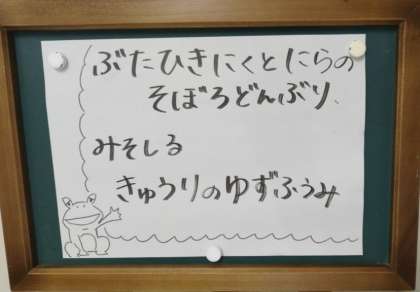 ぶたひきにくとにらの
そぼろどんぶり、
みそしる
きゅうりのゆずふうみ